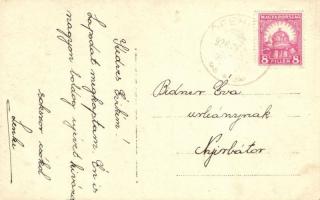 Kedves Évikém!
Lapodat megkaptam Én is
nagyon boldog ujévet kivánok
sokszor csókol
Lenke
MAGYARORSZÁG
8 FILLÉR 8
Bodner Éva
urleánynak
Nyirbátor